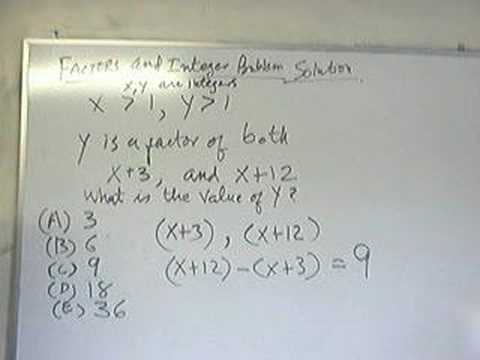 FACTORS and Integer Problem Solution
x, y are integers
x > 1, y > 1
Y is a factor of both
x+3, and x+12
What is the value of Y?
(A) 3
(B) 6
(C) 9
(D) 18
(E) 36
(x+3), (x+12)
(x+12)-(x+3) = 9